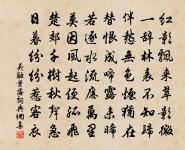 紅影飄來翠影微
一辭林表不知歸
伴愁無色煙猶在
替恨成啼露未晞
若逐水流應萬里
莫因風起便孤飛
楚郊千樹秋聲急
日暮紛紛惹客衣
吳融葉落